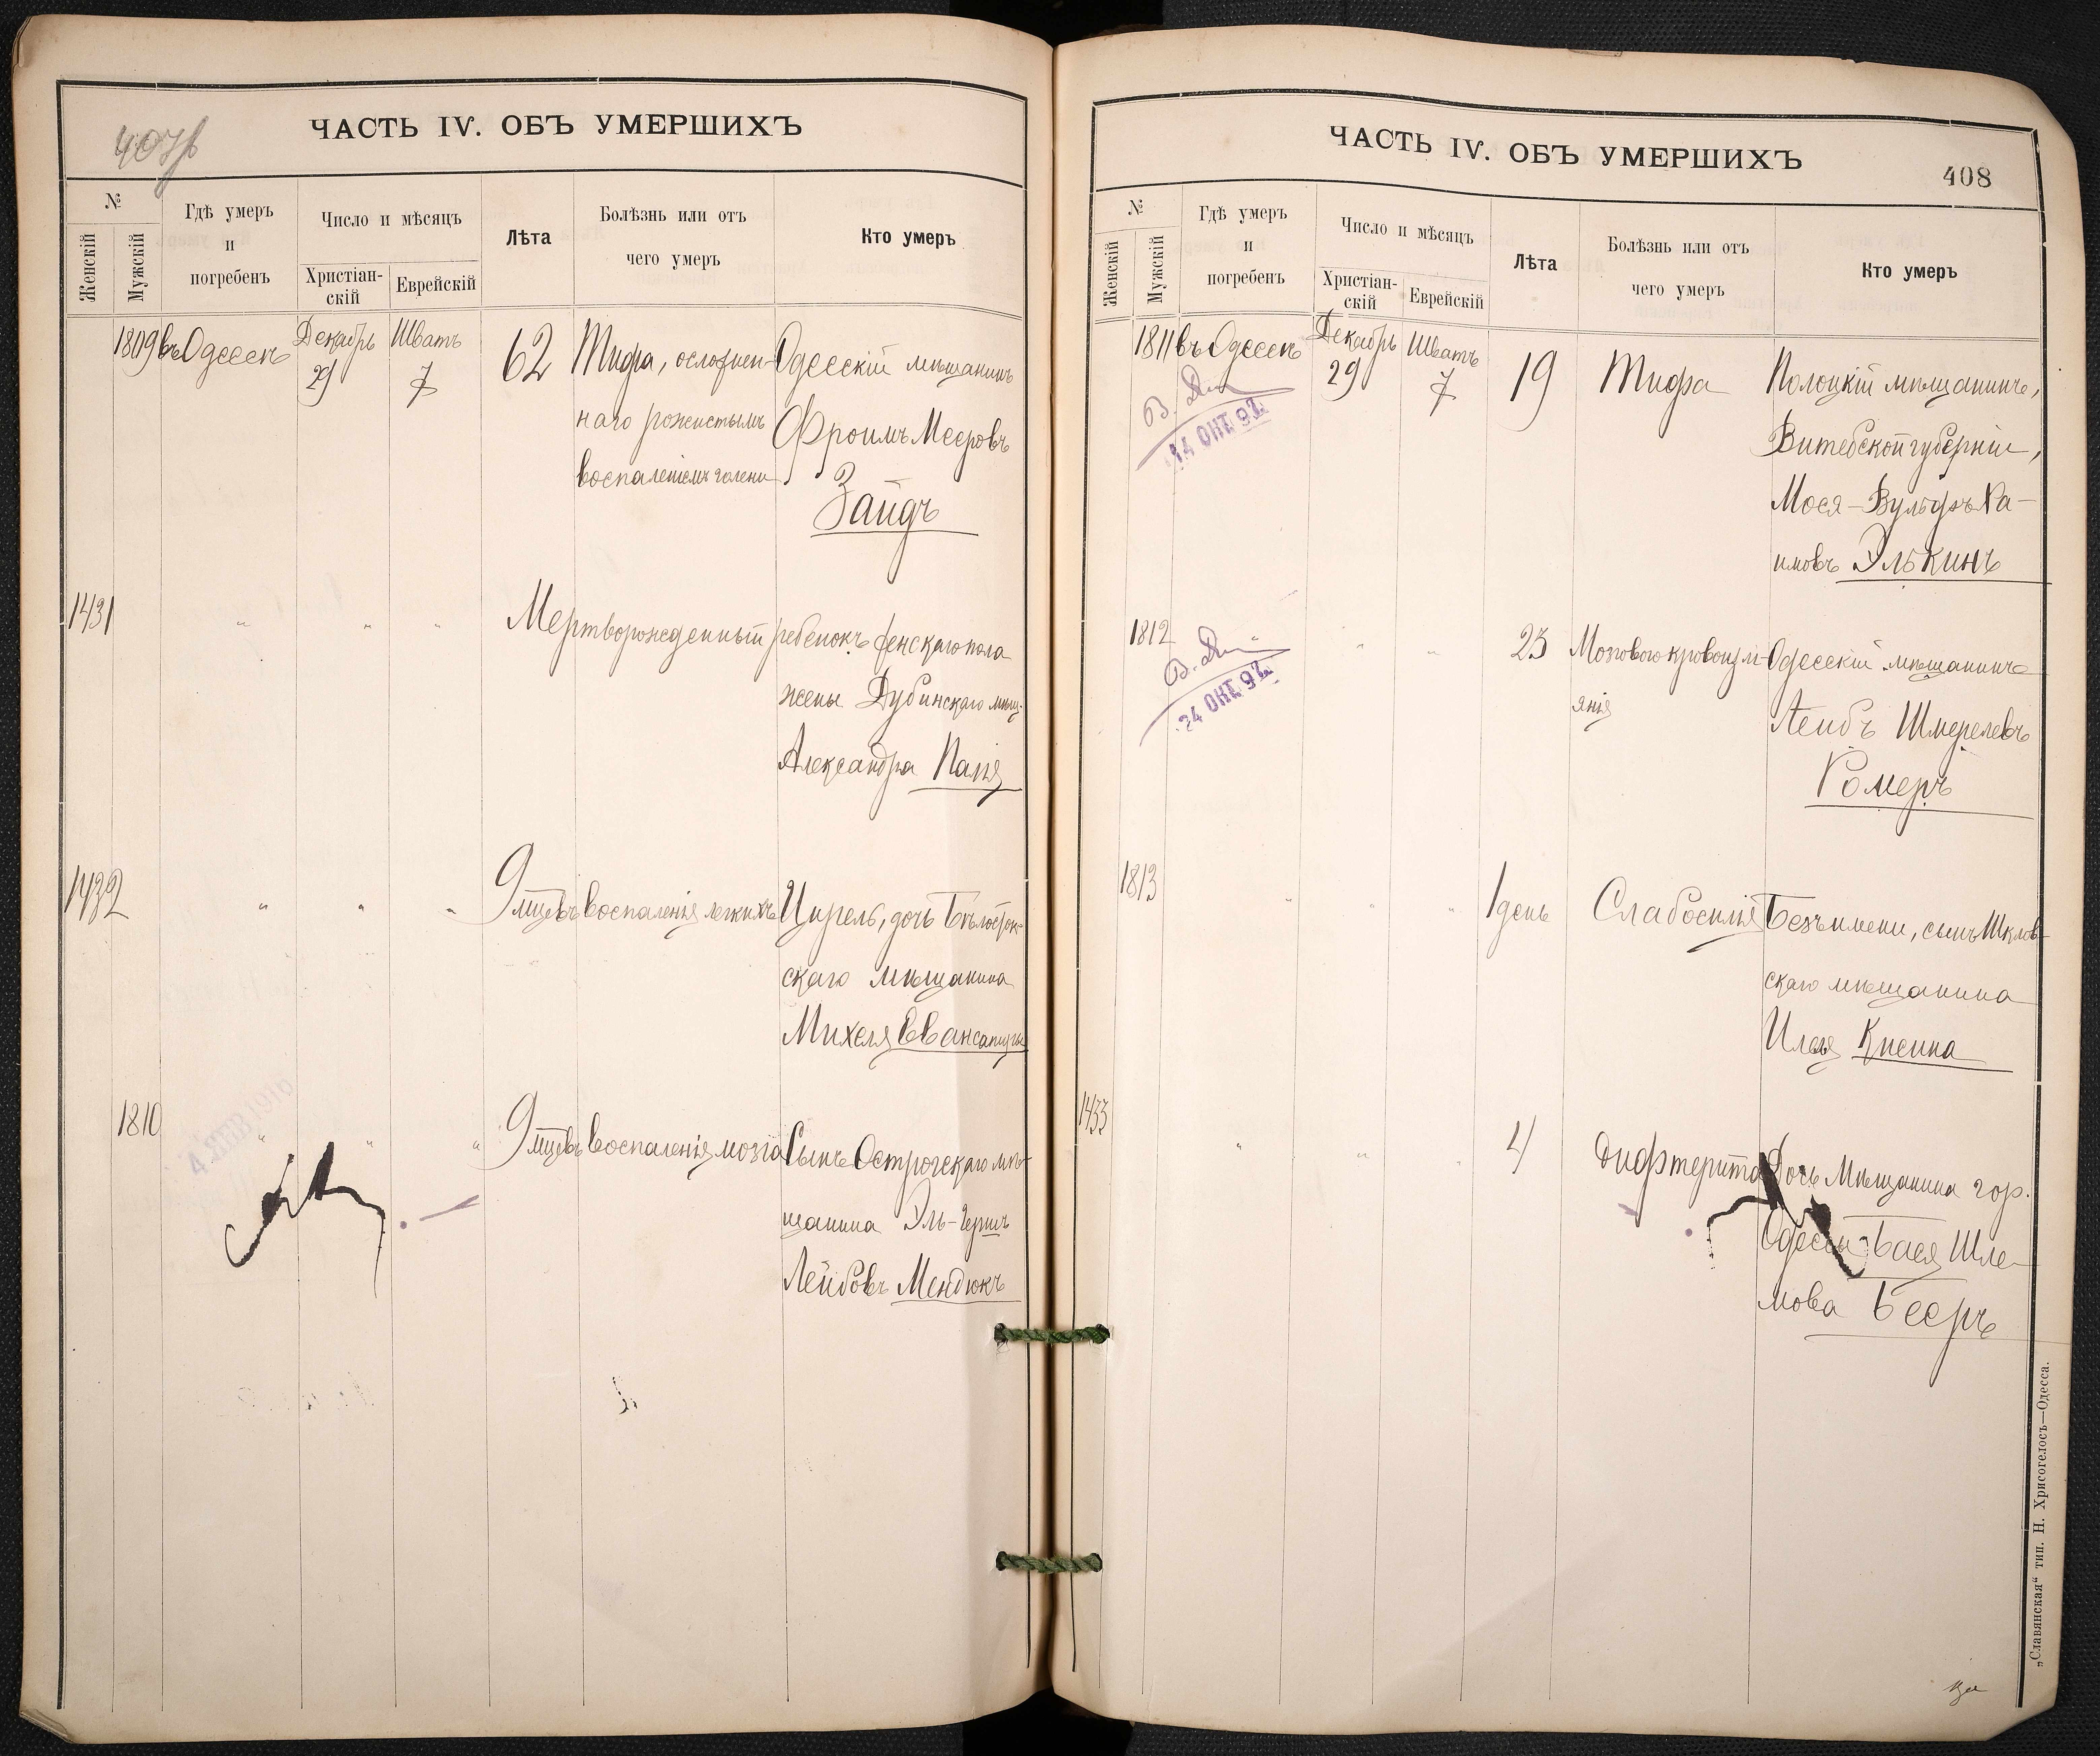 407 об
ЧАСТЬ IV. ОБЪ УМЕРШИХЪ
№
Женскій
Мужскій
Гдѣ умеръ
и
погребенъ
Число и мѣсяцъ
Христіан-
скій
Еврейскій
Лѣта
Болѣзнь или отъ
чего умеръ
Кто умеръ
1809 въ Одессѣ Декабрь Шватъ 62 Тифа, осложнен- Одесскій мѣщанинъ
29 7 наго рожистымъ Фроимъ Мееровъ
воспаленіемъ голени Зайдъ
1431 " " " Мертворожденный ребенокъ женскаго пола
жены Дубинскаго мѣщ.
Александра Палія
1432 " " " 9 мцевъ воспаленія легкихъ Цирель, дочь Бѣлосток-
скаго мѣщанина
Михеля
1810 " " " 9 мцевъ воспаленія мозга Сынъ Острогскаго мѣ-
щанина Эль-Гершъ
Лейбовъ Мендюкъ
4 ЯНВ 1910
ЧАСТЬ IV. ОБЪ УМЕРШИХЪ
408
№
Женскій
Мужскій
Гдѣ умеръ
и
погребенъ
Число и мѣсяцъ
Христіан-
скій
Еврейскій
Лѣта
Болѣзнь или отъ
чего умеръ
Кто умеръ
1811 въ Одессѣ Декабрь Шватъ 19 Тифа Полоцкій мѣщанинъ,
29 7 Витебской губерніи,
14 ОКТ. 92 Мося-Вульфъ Ха-
имовъ Элькинъ
1812 " " " 23 Мозгового кровоизлі- Одесскій мѣщанинъ
янія Лейбъ Шмерелевъ
24 ОКТ. 92 Ромеръ
1813 " " " 1 день Слабосилія Безъ имени, сынъ Шклов-
скаго мѣщанина
Ильи Кнеина
1433 " " " 4 дифтерита Дочь Мѣщанина гор.
Одессы Бася Шле-
мова Бееръ
„Славянская“ тип. Н. Хрисогелосъ—Одесса.